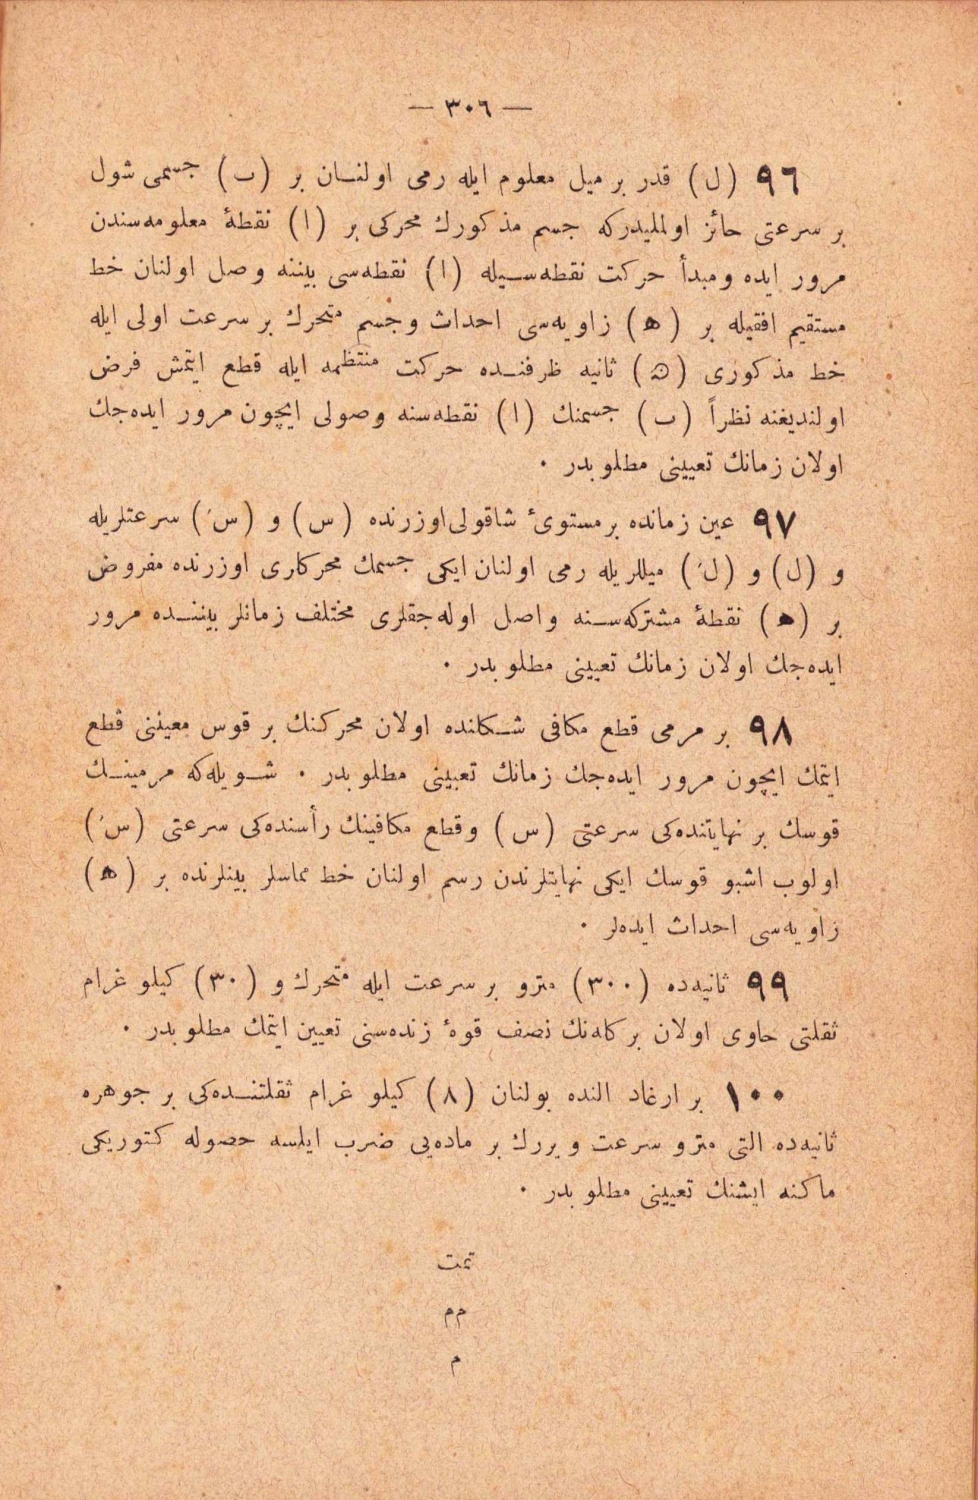 — ٣٠٦ —
٩٦ (ل) قدر بر ميل معلوم ايله رمى اولنان بر (ب) جسمى شول
بر سرعتى حائز اولمليدركه جسم مذكورك محركى بر (ا) نقطهٔ معلومه‌سندن
مرور ايده ومبدأ حركت نقطه‌سيله (ا) نقطه‌سى بيننه وصل اولنان خط
مستقيم افقيله بر (ه) زاويه‌سى احداث وجسم متحرك بر سرعت اولى ايله
خط مذكورى (ۿ) ثانيه ظرفنده حركت منتظمه ايله قطع ايتمش فرض
اولنديغنه نظراً (ب) جسمنك (ا) نقطه‌سنه وصولى ايچون مرور ايده‌جك
اولان زمانك تعيينى مطلوبدر ·
٩٧ عين زمانده بر مستوىٔ شاقولى اوزرنده (س) و (سَ) سرعتلريله
و (ل) و (لَ) ميللريله رمى اولنان ايكى جسمك محركلرى اوزرنده مفروض
بر (ه) نقطهٔ مشتركه‌سنه واصل اوله‌جقلرى مختلف زمانلر بيننده مرور
ايده‌جك اولان زمانك تعيينى مطلوبدر ·
٩٨ بر مرمى قطع مكافى شكلنده اولان محركنك بر قوس معيننى قطع
ايتمك ايچون مرور ايده‌جك زمانك تعيينى مطلوبدر · شويله‌كه مرمينك
قوسك بر نهايتنده‌كى سرعتى (س) وقطع مكافينك رأسنده‌كى سرعتى (سَ)
اولوب اشبو قوسك ايكى نهايتلرندن رسم اولنان خط مماسلر بينلرنده بر (ه)
زاويه‌سى احداث ايده‌لر ·
٩٩ ثانيه‌ده (٣٠٠) مترو بر سرعت ايله متحرك و (٣٠) كيلو غرام
ثقلتى حاوى اولان بر كله‌نك نصف قوهٔ زنده‌سنى تعيين ايتمك مطلوبدر ·
١٠٠ بر ارغاد النده بولنان (٨) كيلو غرام ثقلتنده‌كى بر جوهره
ثانيه‌ده التى مترو سرعت ويره‌رك بر ماده‌يى ضرب ايلسه حصوله كتوريكى
ماكنه ايشنك تعيينى مطلوبدر ·
تمت
مم
م